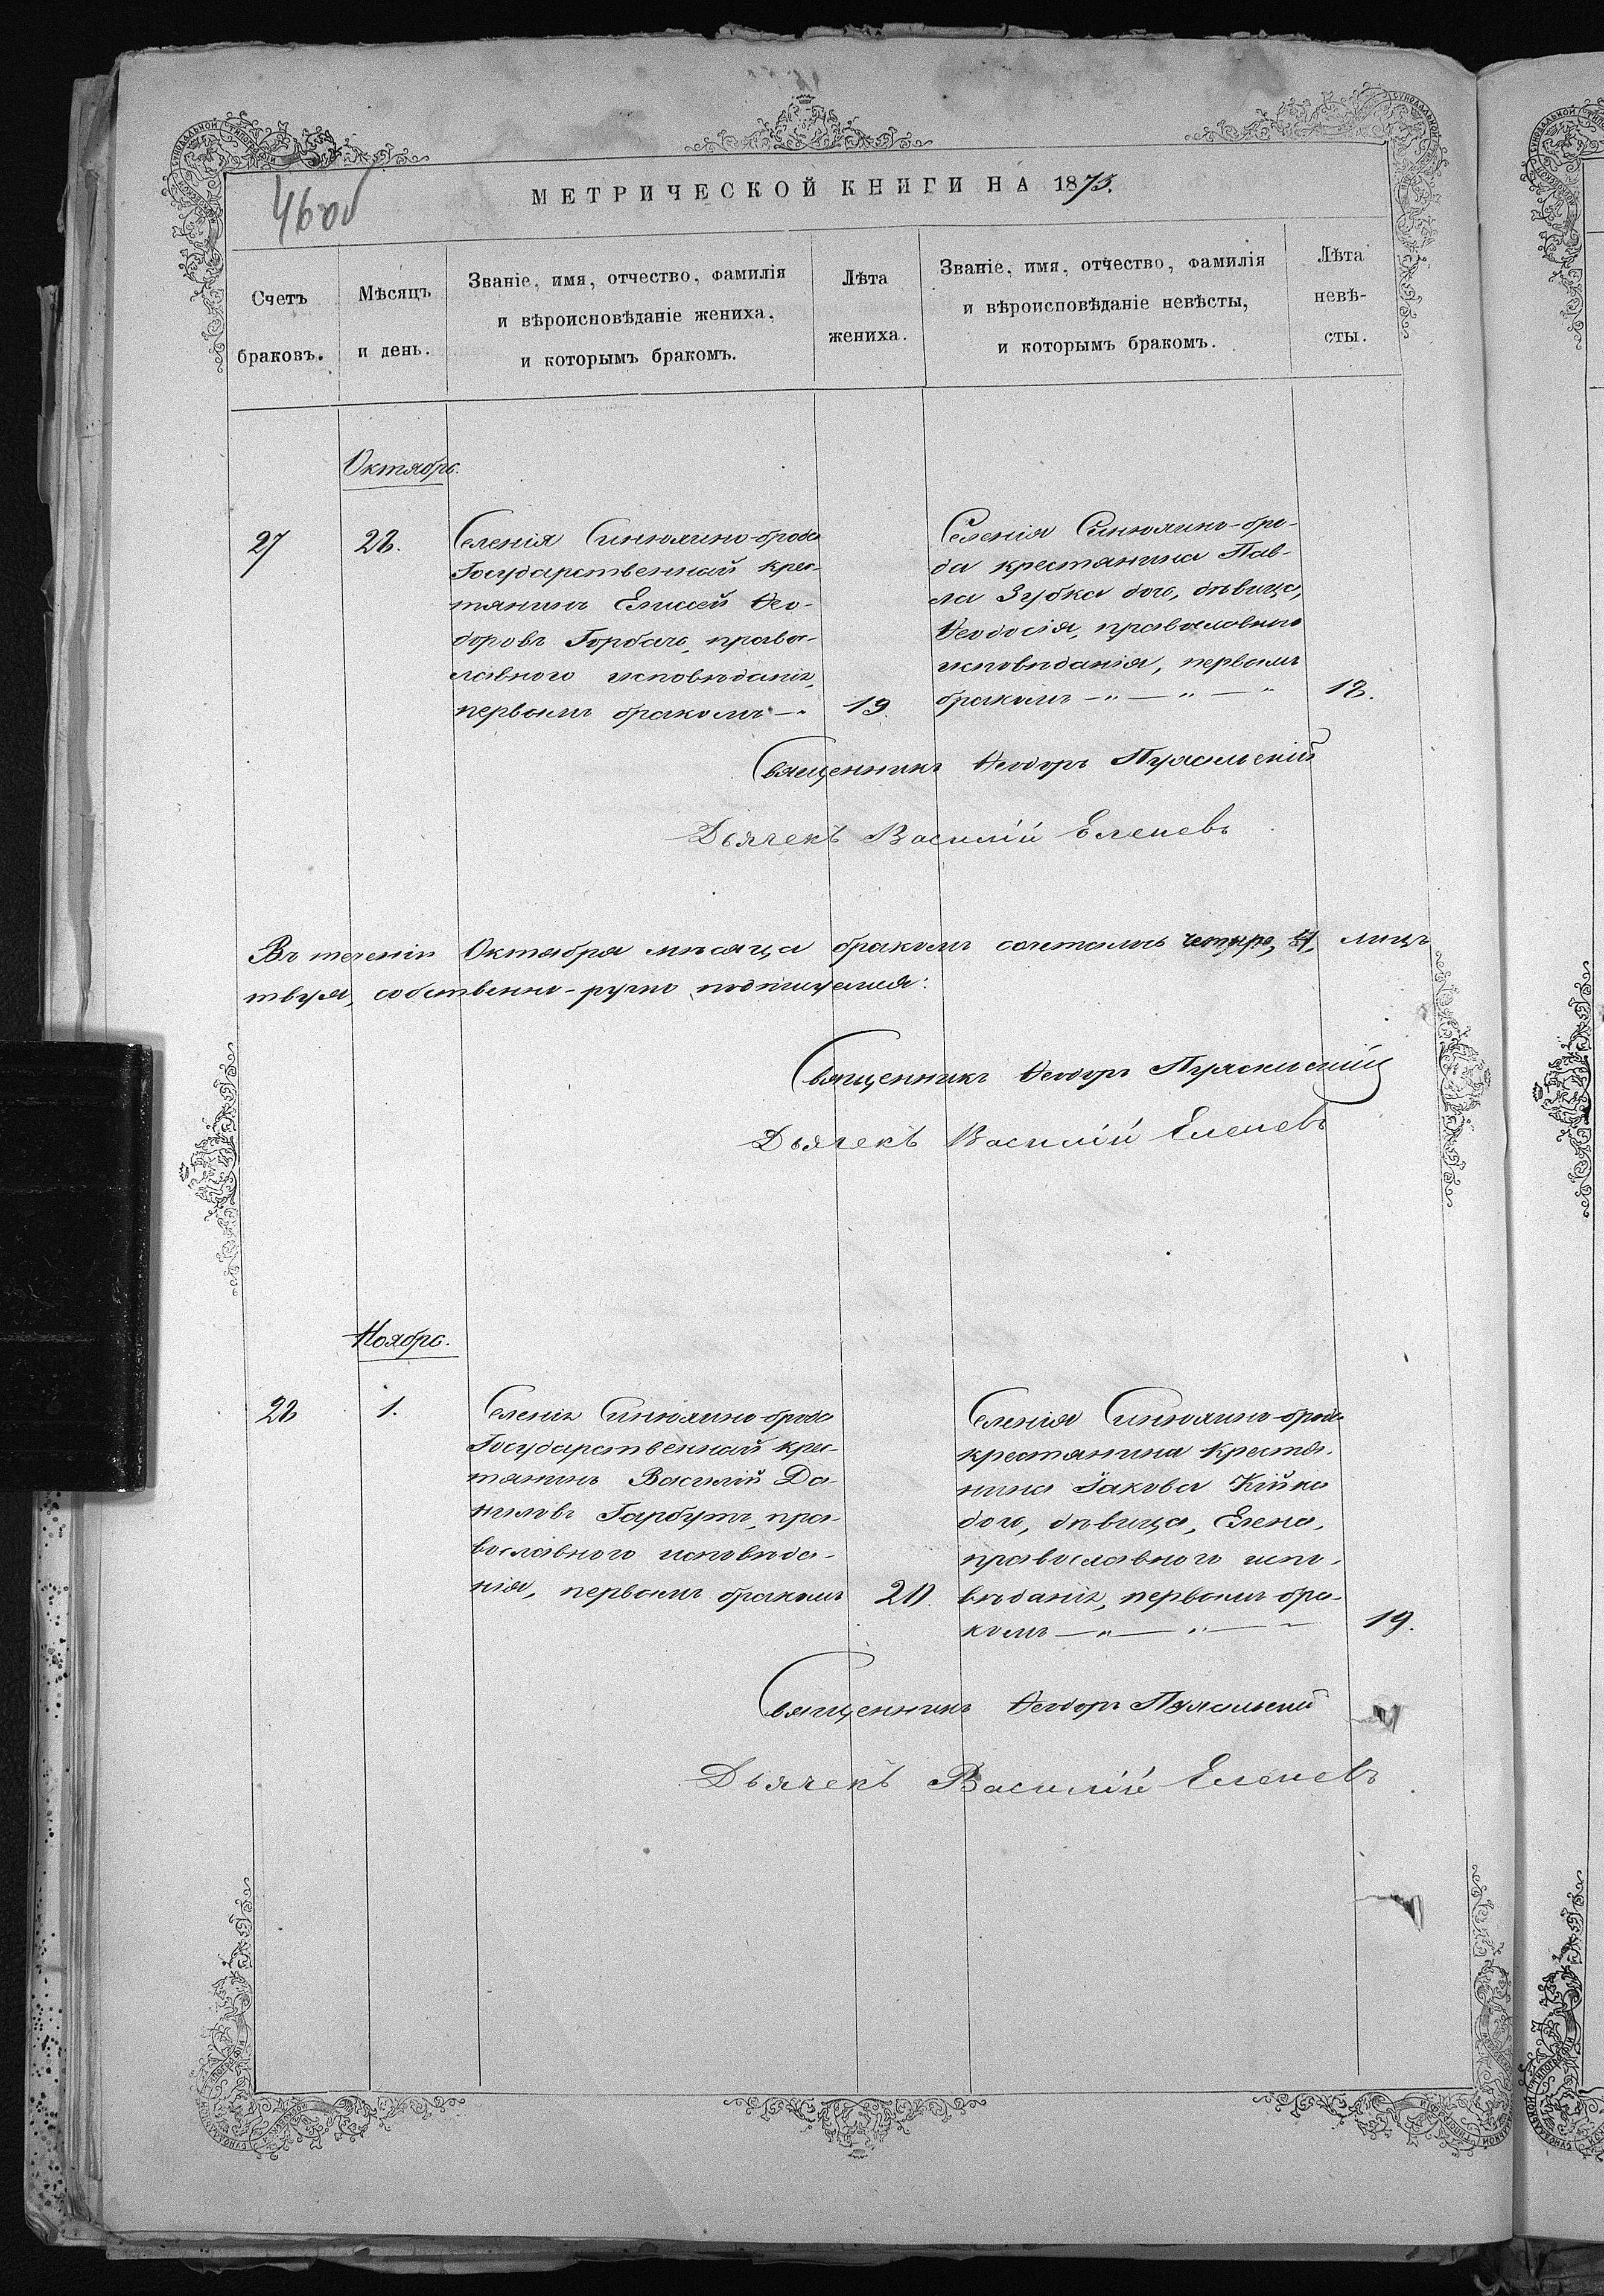 МЕТРИЧЕСКОЙ КНИГИ НА 1875.
460об
Счетъ браковъ.
Мѣсяцъ и день.
Званіе, имя, отчество, фамилія
и вѣроисповѣданіе жениха,
и которымъ бракомъ.
Лѣта жениха.
Званіе, имя, отчество, фамилія
и вѣроисповѣданіе невѣсты,
и которымъ бракомъ.
Лѣта
невѣ-
сты.
Октябрь.
27
28.
Селенія Синюхино-брода
Государственный крес-
тянинъ Елисей Ѳео-
доровъ Горбачъ, право-
славного исповѣданія,
первымъ бракомъ
19.
Селенія Синюхино-бро-
да крестянина Пав-
ла Зубка дочь, дѣвица,
Ѳеодосія, православного
исповѣданія, первымъ
бракомъ
18.
Священникъ Ѳеодоръ
Дьячекъ Василій
Въ теченіи Октября мѣсяца бракомъ сочетались четыре, 4, лицъ
твуя, собственно-ручно подписуемся:
Священникъ Ѳеодоръ
Дьячекъ Василій
Ноябрь.
28
1.
Селенія Синюхино-брода
Государственный крес-
тянинъ Василій Да-
ниловъ Гарбузъ, пра-
вославного исповѣда-
нія, первымъ бракомъ
20.
Селенія Синюхино-брода
крестянина Крестя-
нина Іакова Кійка
дочь, дѣвица, Елена,
православного испо-
вѣданія, первымъ бра-
комъ
19.
Священникъ Ѳеодоръ
Дьячекъ Василій